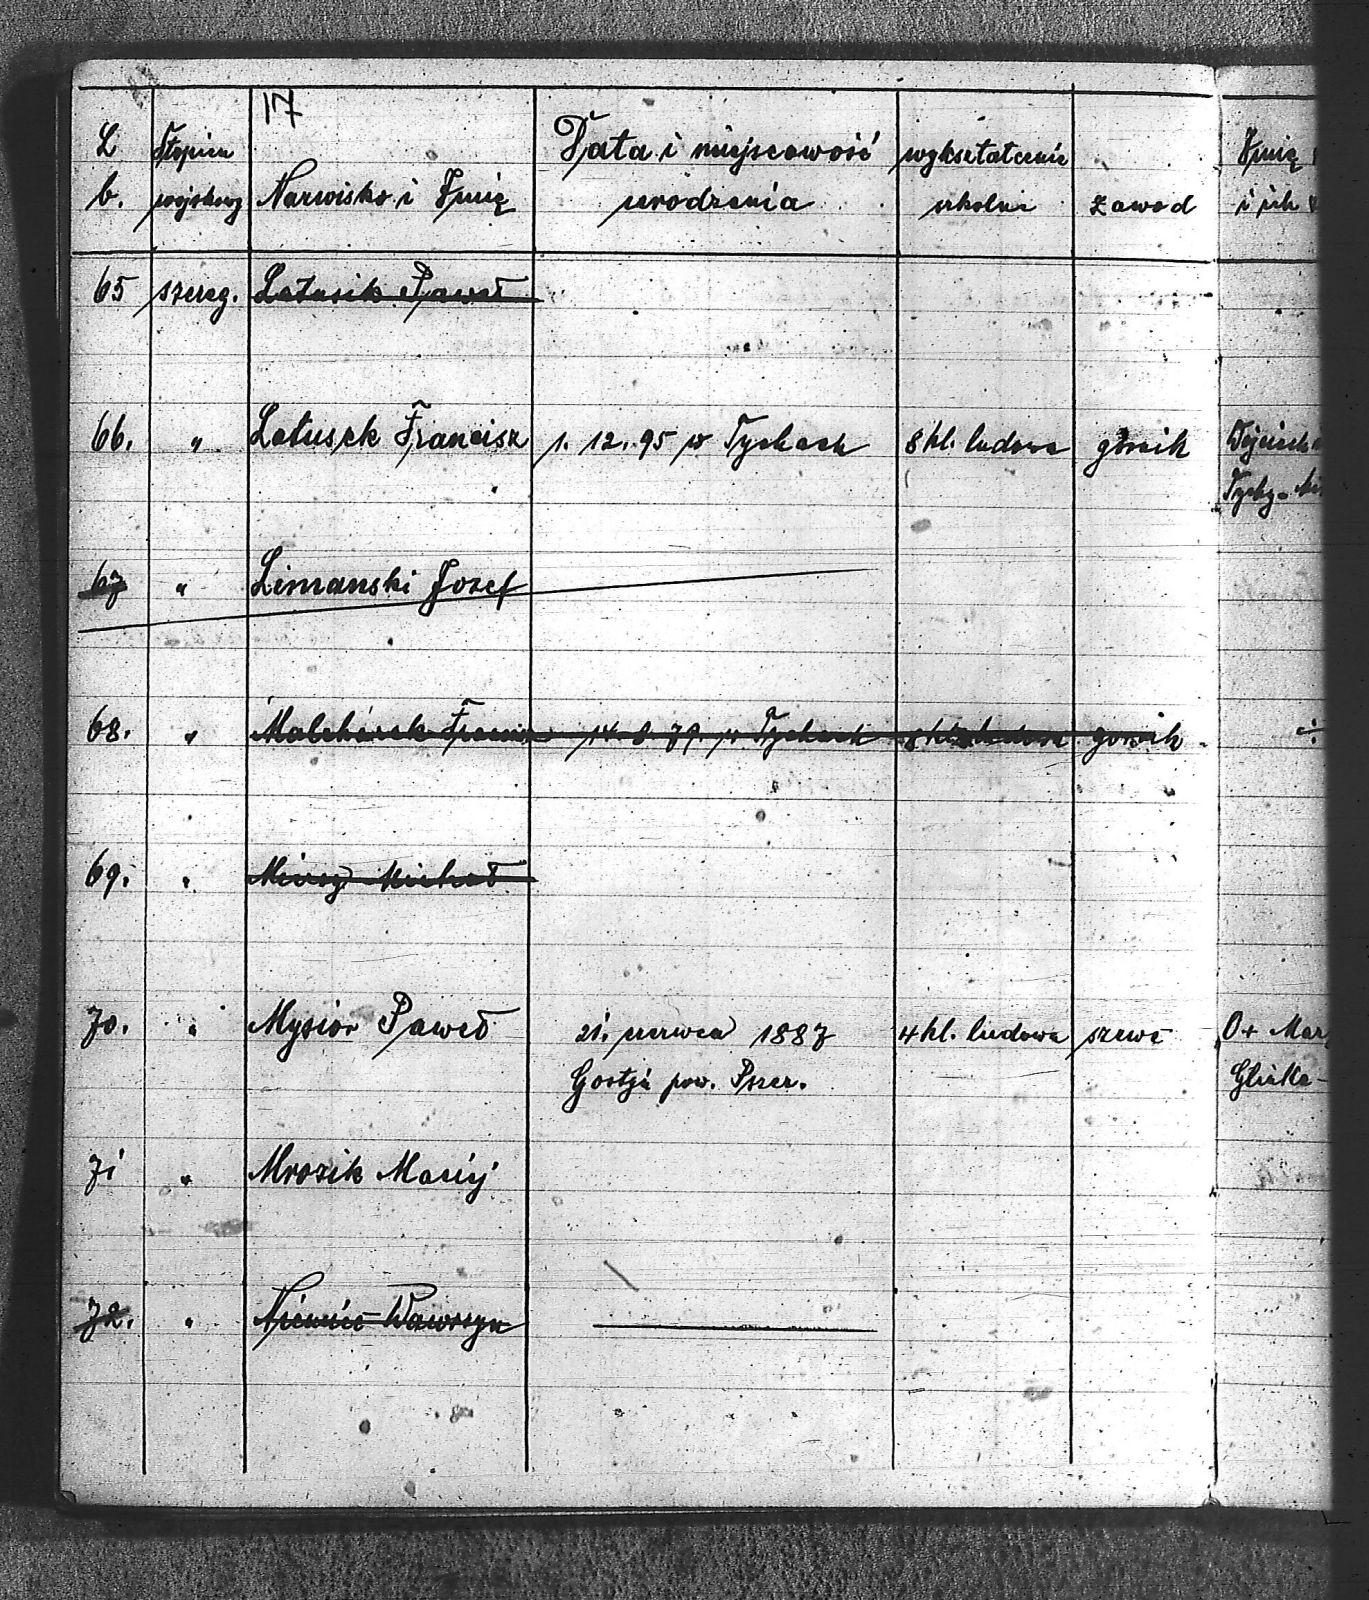 17
L b. Stopień wojskowy Nazwisko i Imię Data i miejscowość urodzenia wykształcenie szkolne zawod Imię i ich
65 szereg. Latusik Paweł
66. " Latusek Francisz 1. 12. 95 w Tychach 8 kl. ludowa górnik Wojciech
Tychy -
67 " Limanski Jozef
68. " Malcharek Francis 14. 8. 79. w Tychach 8 kl. ludowa gornik ÷
69. " Michał
70. " Mysior Paweł 21. czerwca 1887 4 kl. ludowa szewc O+ Mar
Gostyń pow. Pszcz. Glinka -
71 " Mrozik Maciej
72. " Niewieć Wawrzyn